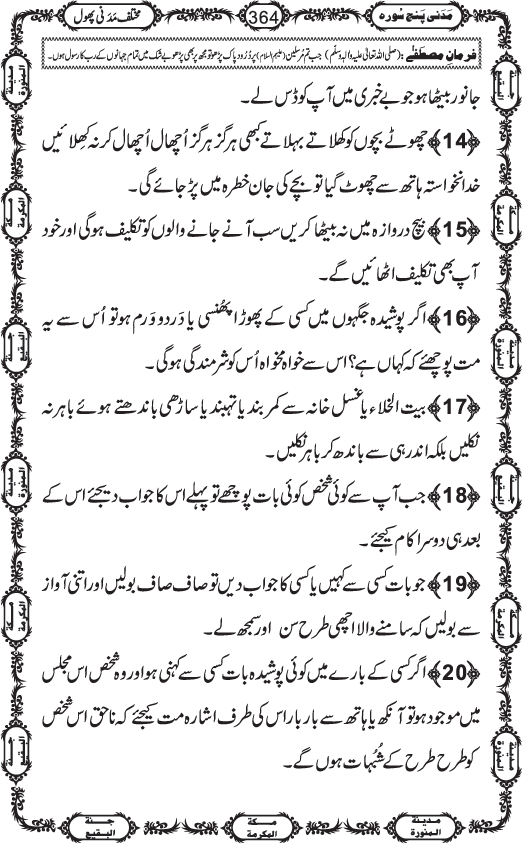 مَدَنی پنج سورہ
364
مختلف مَدَنی پھول
فرمانِ مصطفےٰ : (صلی اللہ تعالیٰ علیہ والہٖ وسلّم) جب تم مُرسلین (علیہم السلام) پر دُرُود پاک پڑھو تو مجھ پر بھی پڑھو بے شک میں تمام جہانوں کے رب کا رسول ہوں۔
جانور بیٹھا ہو جو بے خبری میں آپ کو ڈس لے۔
﴿14﴾ چھوٹے بچوں کو کھلاتے بہلاتے کبھی ہرگز ہرگز اُچھال اُچھال کر نہ کھِلائیں
خدانخواستہ ہاتھ سے چھوٹ گیا تو بچے کی جان خطرہ میں پڑ جائے گی۔
﴿15﴾ بیچ دروازہ میں نہ بیٹھا کریں سب آنے جانے والوں کو تکلیف ہوگی اور خود
آپ بھی تکلیف اٹھائیں گے۔
﴿16﴾ اگر پوشیدہ جگہوں میں کسی کے پھوڑا پھُنسی یا دَرد و وَرم ہو تو اُس سے یہ
مت پوچھئے کہ کہاں ہے؟ اس سے خواہ مخواہ اُس کو شرمندگی ہوگی۔
﴿17﴾ بیت الخلاء یا غسل خانہ سے کمر بند یا تہبند یا ساڑھی باندھتے ہوئے باہر نہ
نکلیں بلکہ اندر ہی سے باندھ کر باہر نکلیں۔
﴿18﴾ جب آپ سے کوئی شخص کوئی بات پوچھے تو پہلے اس کا جواب دیجئے اس کے
بعد ہی دوسرا کام کیجئے۔
﴿19﴾ جو بات کسی سے کہیں یا کسی کا جواب دیں تو صاف صاف بولیں اور اتنی آواز
سے بولیں کہ سامنے والا اچھی طرح سن اور سمجھ لے۔
﴿20﴾ اگر کسی کے بارے میں کوئی پوشیدہ بات کسی سے کہنی ہو اور وہ شخص اس مجلس
میں موجود ہو تو آنکھ یا ہاتھ سے بار بار اس کی طرف اشارہ مت کیجئے کہ ناحق اس شخص
کو طرح طرح کے شُبُہات ہوں گے۔
جنۃ البقیع
مکۃ المکرمۃ
مدینۃ المنورۃ